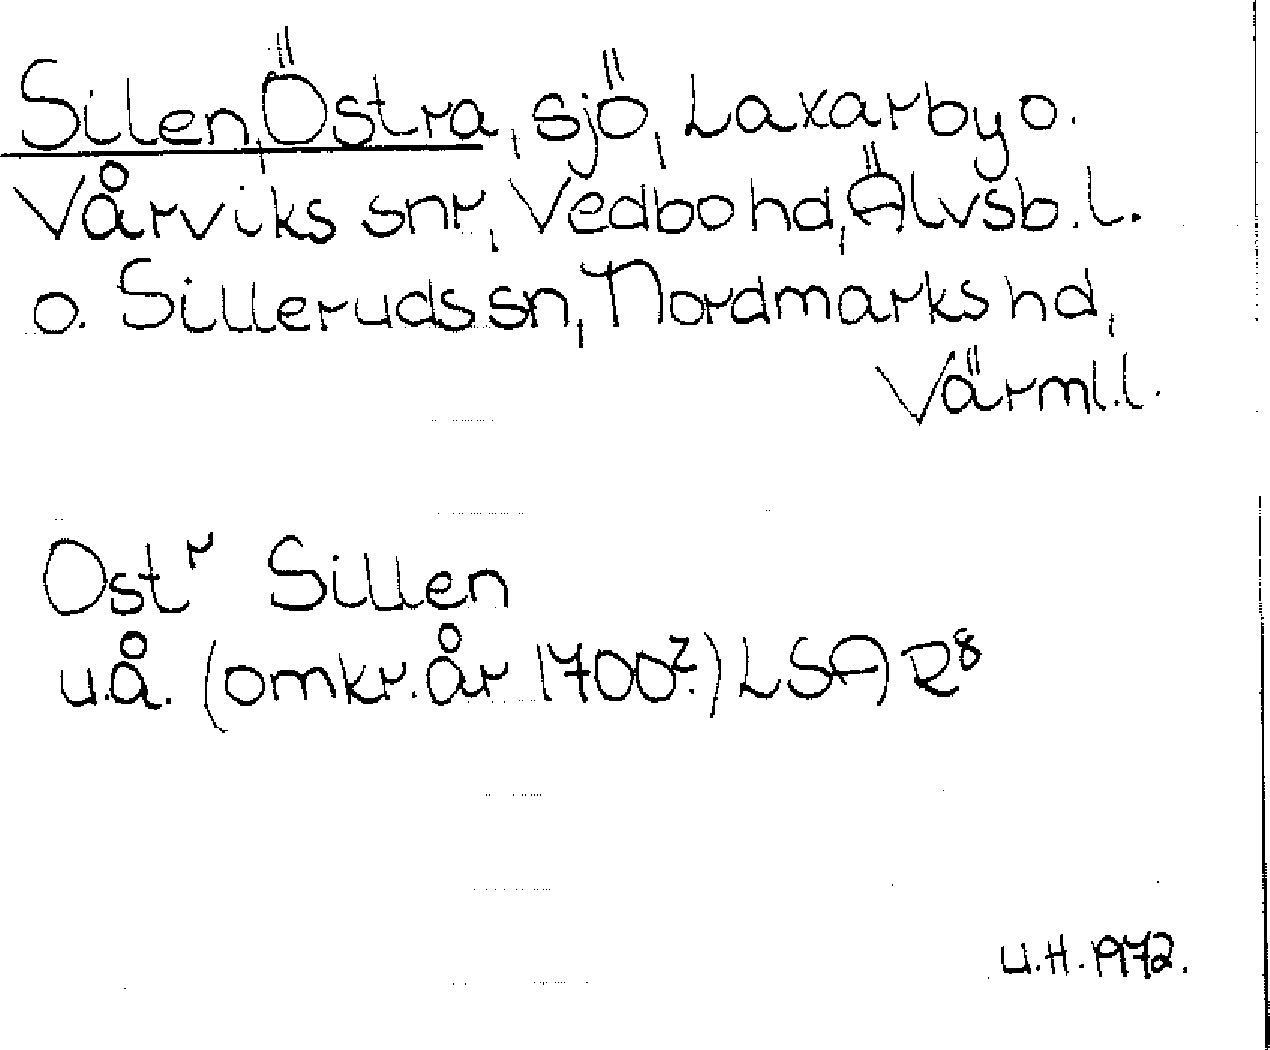 Silen, Östra, sjö, Laxarby o.
Vårviks snr, Vedbo hd, Älvsb. l.
o. Silleruds sn, Nordmarks hd,
Värml. l.
Ostr Sillen
u.å. (omkr. år 1700?) LSA R8
U.H. 1972.